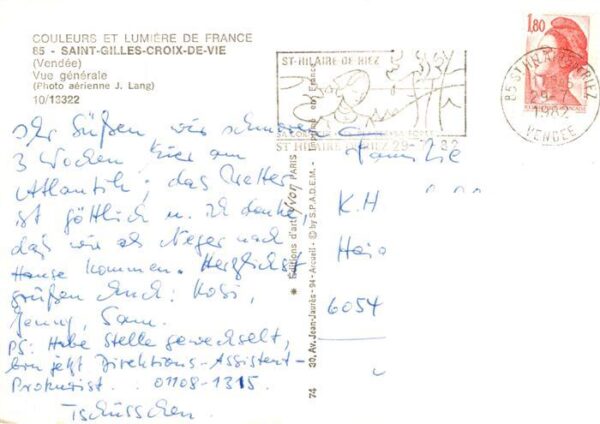 COULEURS ET LUMIÈRE DE FRANCE
85 - SAINT-GILLES-CROIX-DE-VIE
(Vendée)
Vue générale
(Photo aérienne J. Lang)
10/13322
Ihr Süßen, wir
3 Wochen hier am
Atlantik; das Wetter
ist göttlich u. ich denke,
daß wir als Neger nach
Hause kommen. Herzlichst
grüßen Euch: Kobi,
Jenny, Sam.
PS: Habe Stelle gewechselt,
bin jetzt Direktions-Assistent-
Prokurist. 01108-1315.
Tschüsschen
ST-HILAIRE DE RIEZ
ST HILAIRE DE RIEZ 29-7 82
1,80
85 ST HILAIRE DE RIEZ
29-7
1982
VENDEE
Familie
K.H
Hajo
6054
* Éditions d'art yvon PARIS
30, Av. Jean-Jaurès - 94 - Arcueil - © by S.P.A.D.E.M. - Imprimé en France
74